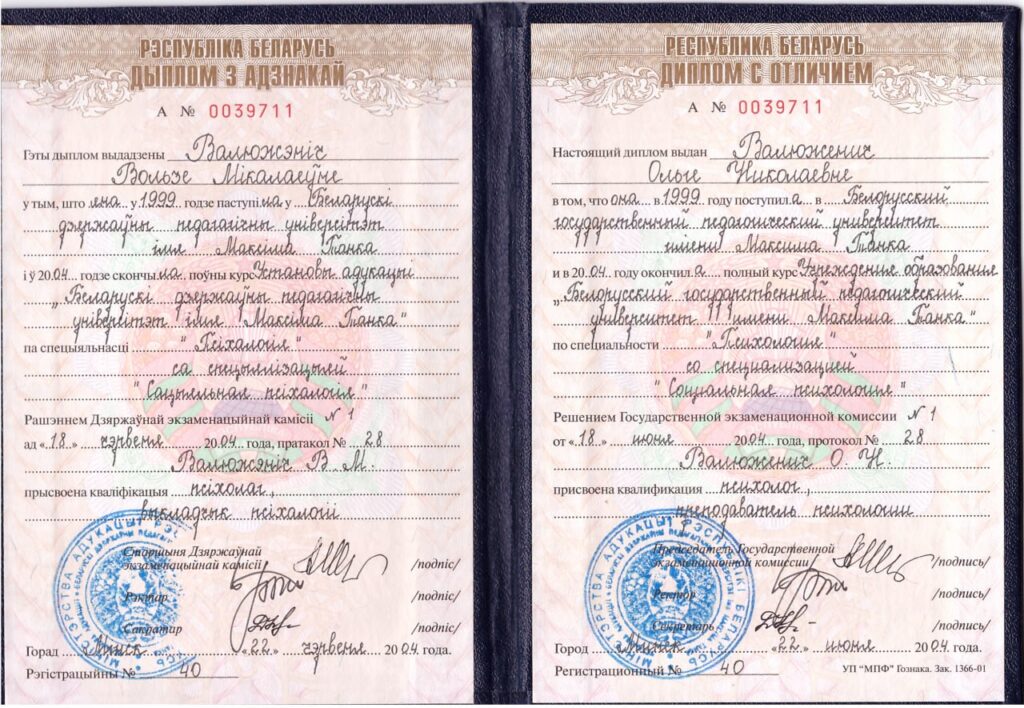 РЭСПУБЛІКА БЕЛАРУСЬ
ДЫПЛОМ З АДЗНАКАЙ
А № 0039711
Гэты дыплом выдадзены Валюжэніч
Вользе Мікалаеўне
у тым, што яна у 1999 годзе паступіла у Беларускі
дзяржаўны педагагічны універсітэт
імя Максіма Танка
і ў 2004 годзе скончыла поўны курс Установы адукацыі
„Беларускі дзяржаўны педагагічны
універсітэт імя Максіма Танка“
па спецыяльнасці "Псіхалогія"
са спецыялізацыяй
"Сацыяльная псіхалогія"
Рашэннем Дзяржаўнай экзаменацыйнай камісіі № 1
ад «18» чэрвеня 2004 года, пратакол № 28
Валюжэніч В. М.
прысвоена кваліфікацыя псіхолаг,
выкладчык псіхалогіі
Старшыня Дзяржаўнай
экзаменацыйнай камісіі /подпіс/
Рэктар /подпіс/
Сакратар /подпіс/
Горад Мінск «22» чэрвеня 2004 года.
Рэгістрацыйны № 40
РЕСПУБЛИКА БЕЛАРУСЬ
ДИПЛОМ С ОТЛИЧИЕМ
А № 0039711
Настоящий диплом выдан Валюженич
Ольге Николаевне
в том, что она в 1999 году поступила в Белорусский
государственный педагогический университет
имени Максима Танка
и в 2004 году окончила полный курс Учреждения образования
„Белорусский государственный педагогический
университет имени Максима Танка“
по специальности "Психология"
со специализацией
"Социальная психология"
Решением Государственной экзаменационной комиссии № 1
от «18» июня 2004 года, протокол № 28
Валюженич О. Н.
присвоена квалификация психолог,
преподаватель психологии
Председатель Государственной
экзаменационной комиссии /подпись/
Ректор /подпись/
Секретарь /подпись/
Город Минск «22» июня 2004 года.
Регистрационный № 40
УП “МПФ” Гознака. Зак. 1366-01